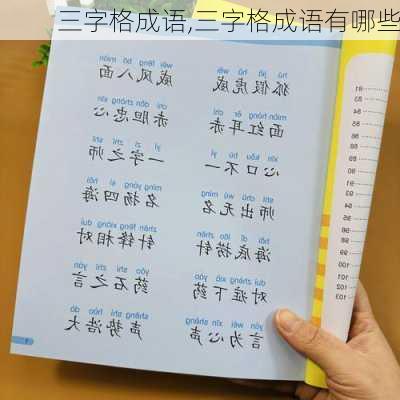 三字格成语,三字格成语有哪些
hú jiǎ hǔ wēi wēi fēng bā miàn
狐假虎威 威风八面
miàn hóng ěr chì chì dǎn zhōng xīn
面红耳赤 赤胆忠心
xīn kǒu bù yī yī zì zhī shī
心口不一 一字之师
shī chū wú míng míng yáng sì hǎi
师出无名 名扬四海
hǎi dǐ lāo zhēn zhēn fēng xiāng duì
海底捞针 针锋相对
duì zhèng xià yào yào shí zhī yán
对症下药 药石之言
yán wéi xīn shēng shēng shì hào dà
言为心声 声势浩大